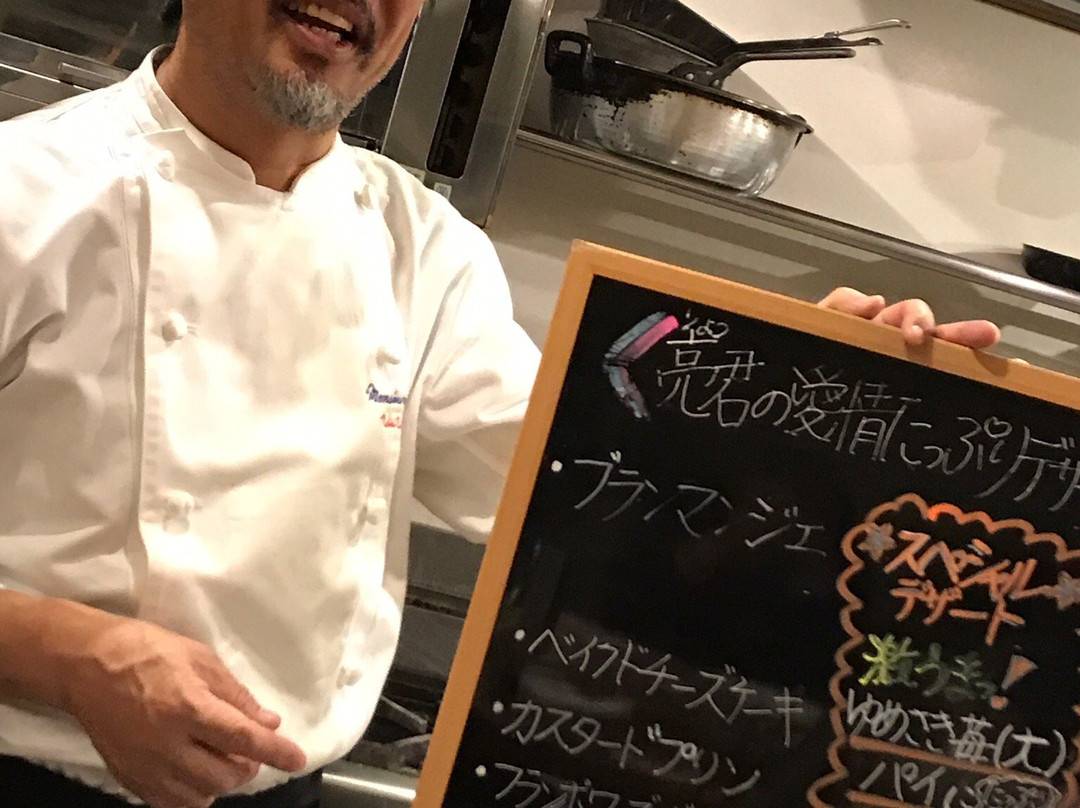 亮君の愛情たっぷりデザ
・ブランマンジェ
・ベイクドチーズケーキ
・カスタードプリン
・フランボワーズ
スペシャル
デザート
激うまっ!
ゆめさき苺(大)
パイに